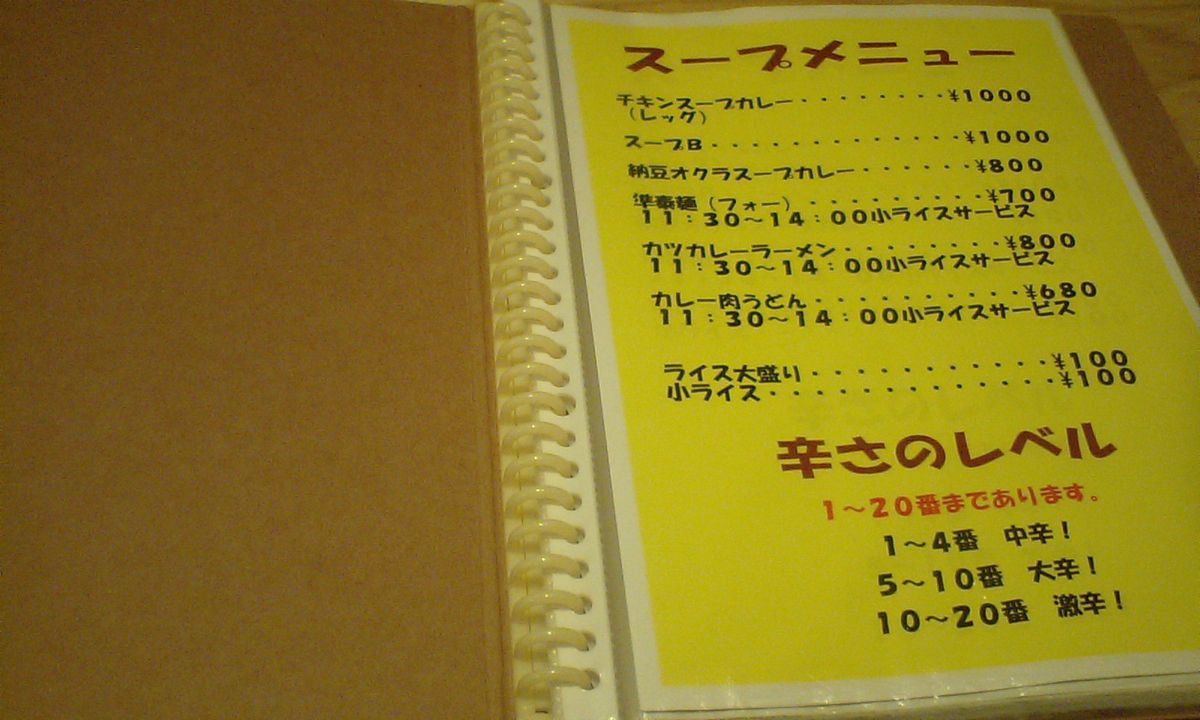 スープメニュー
チキンスープカレー・・・・・・・・¥1000
（レッグ）
スープB・・・・・・・・・・・・・¥1000
納豆オクラスープカレー・・・・・・¥800
準泰麺（フォー）・・・・・・・・・¥700
11：30～14：00小ライスサービス
カツカレーラーメン・・・・・・・・¥800
11：30～14：00小ライスサービス
カレー肉うどん・・・・・・・・・・¥680
11：30～14：00小ライスサービス
ライス大盛り・・・・・・・・・・・¥100
小ライス・・・・・・・・・・・・・¥100
辛さのレベル
1～20番まであります。
1～4番　中辛！
5～10番　大辛！
10～20番　激辛！